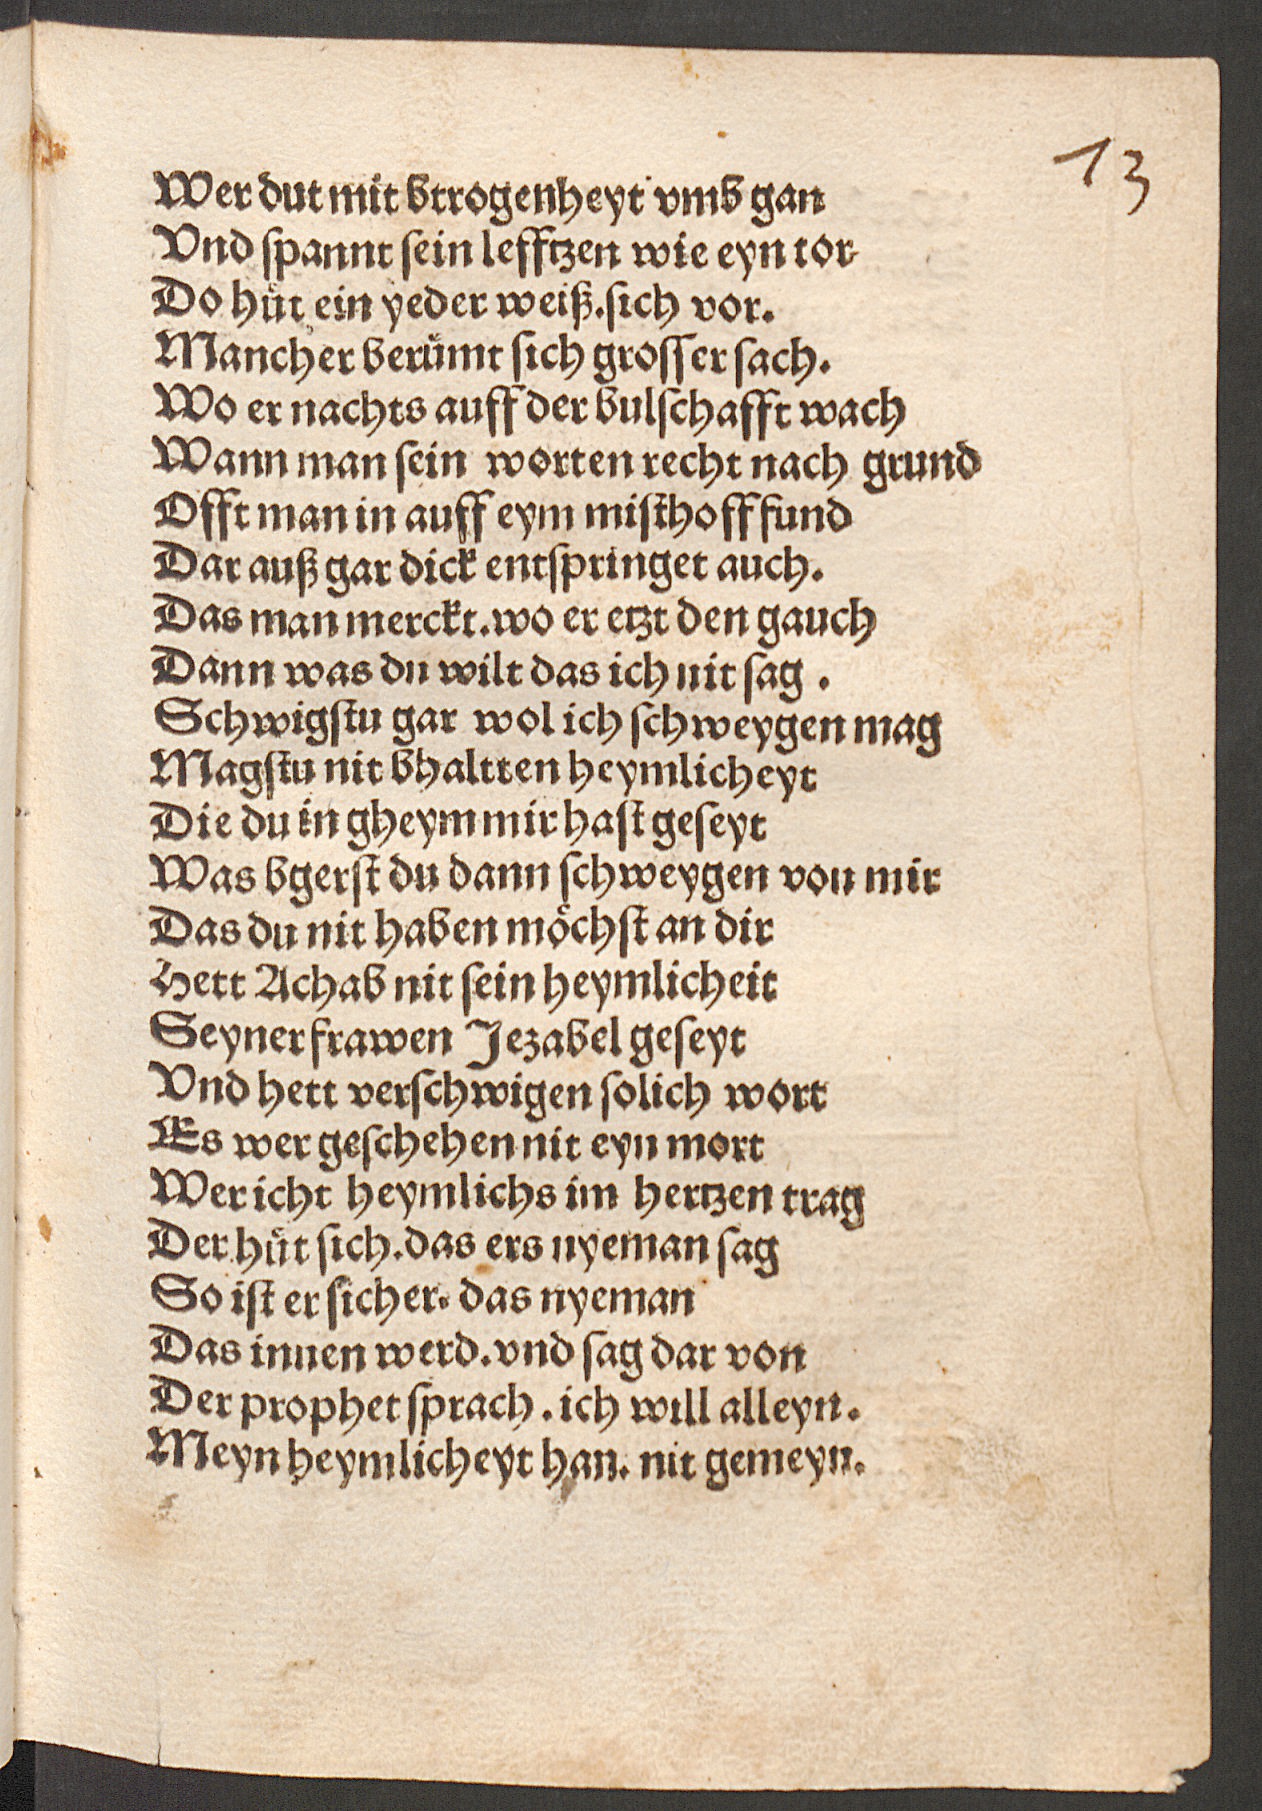 13
Wer dut mit btrogenheyt vmb gan
Vnd spannt sein lefftzen wie eyn tor
Do huͤt ein yeder weiß.sich vor.
Mancher beruͤmt sich grosser sach.
Wo er nachts auff der bulschafft wach
Wann man sein worten recht nach grund
Offt man in auff eym misthoff fund
Dar auß gar dick entspringet auch.
Das man merckt.wo er etzt den gauch
Dann was du wilt das ich nit sag .
Schwigstu gar wol ich schweygen mag
Magstu nit bhaltten heymlicheyt
Die du in gheym mir hast geseyt
Was bgerst du dann schweygen von mir
Das du nit haben moͤchst an dir
Hett Achab nit sein heymlicheit
Seyner frawen Jezabel geseyt
Vnd hett verschwigen solich wort
Es wer geschehen nit eyn mort
Wer icht heymlichs im hertzen trag
Der huͤt sich.das ers nyeman sag
So ist er sicher. das nyeman
Das innen werd.vnd sag dar von
Der prophet sprach . ich will alleyn.
Meyn heymlicheyt han. nit gemeyn.